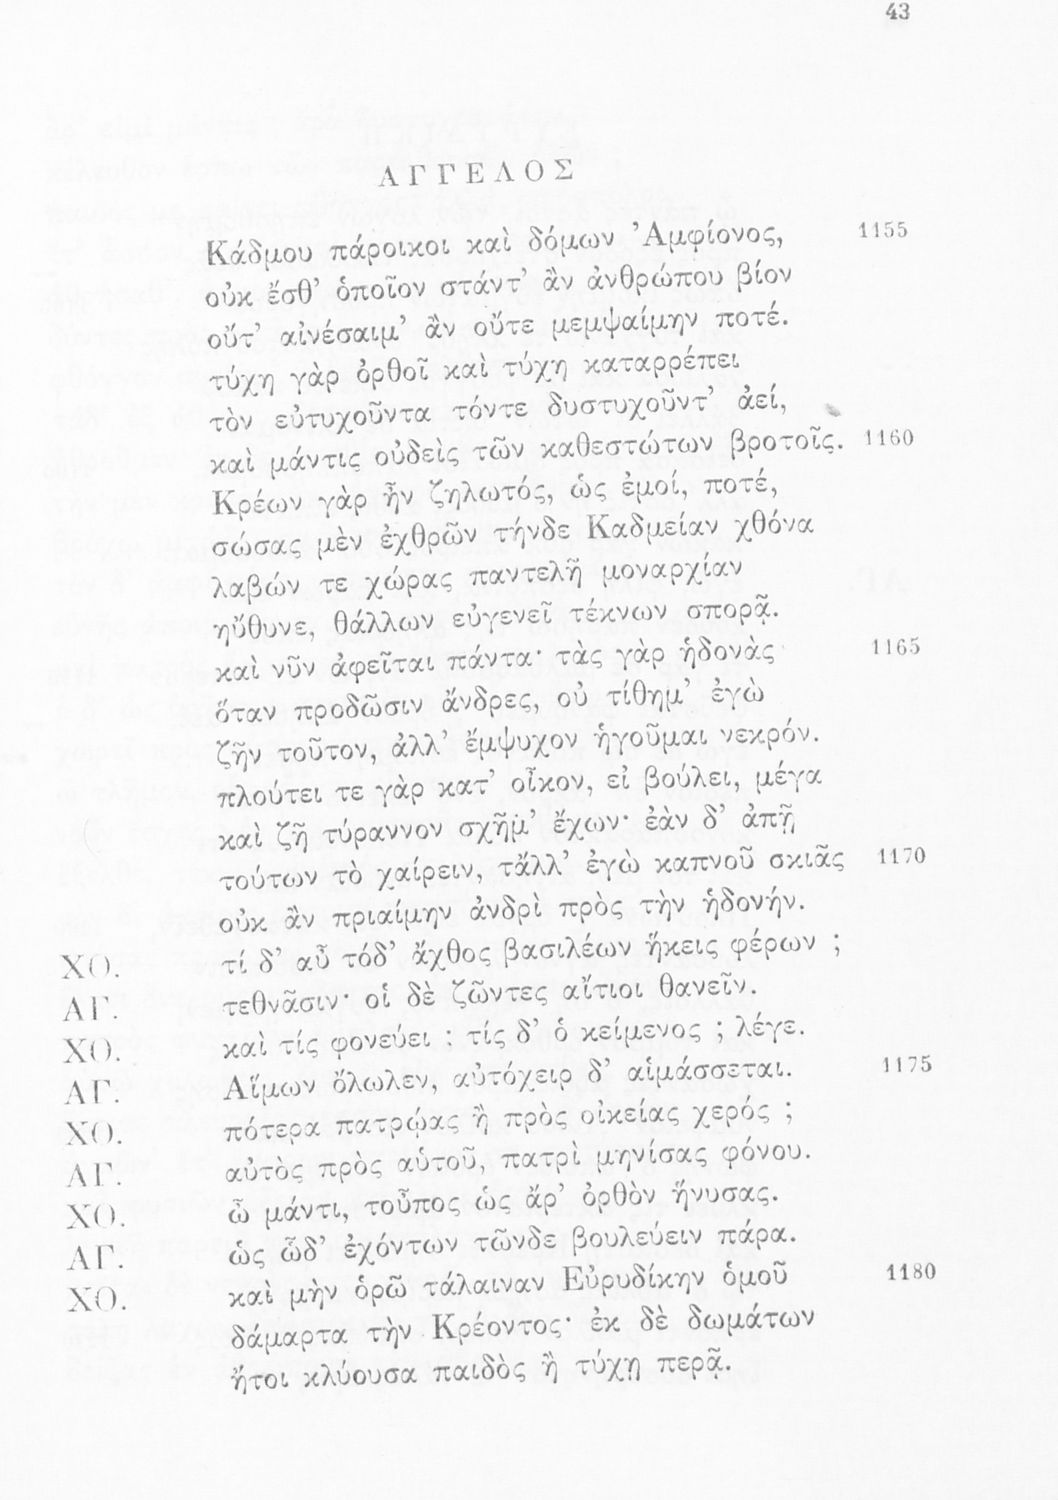 43
ΑΓΓΕΛΟΣ
Κάδμου πάροικοι καὶ δόμων Ἀμφίονος, 1155
οὐκ ἔσθ’ ὁποῖον στάντ’ ἂν ἀνθρώπου βίον
οὔτ’ αἰνέσαιμ’ ἂν οὔτε μεμψαίμην ποτέ.
τύχη γὰρ ὀρθοῖ καὶ τύχη καταρρέπει
τὸν εὐτυχοῦντα τόντε δυστυχοῦντ’ ἀεί,
καὶ μάντις οὐδεὶς τῶν καθεστώτων βροτοῖς. 1160
Κρέων γὰρ ἦν ζηλωτός, ὡς ἐμοί, ποτέ,
σώσας μὲν ἐχθρῶν τήνδε Καδμείαν χθόνα
λαβών τε χώρας παντελῆ μοναρχίαν
ηὔθυνε, θάλλων εὐγενεῖ τέκνων σπορᾷ.
καὶ νῦν ἀφεῖται πάντα· τὰς γὰρ ἡδονὰς 1165
ὅταν προδῶσιν ἄνδρες, οὐ τίθημ’ ἐγὼ
ζῆν τοῦτον, ἀλλ’ ἔμψυχον ἡγοῦμαι νεκρόν.
πλούτει τε γὰρ κατ’ οἶκον, εἰ βούλει, μέγα
καὶ ζῆ τύραννον σχῆμ’ ἔχων· ἐὰν δ’ ἀπῇ
τούτων τὸ χαίρειν, τἄλλ’ ἐγὼ καπνοῦ σκιᾶς 1170
οὐκ ἂν πριαίμην ἀνδρὶ πρὸς τὴν ἡδονήν.
ΧΟ. τί δ’ αὖ τόδ’ ἄχθος βασιλέων ἥκεις φέρων ;
ΑΓ. τεθνᾶσιν· οἱ δὲ ζῶντες αἴτιοι θανεῖν.
ΧΟ. καὶ τίς φονεύει ; τίς δ’ ὁ κείμενος ; λέγε.
ΑΓ. Αἵμων ὄλωλεν, αὐτόχειρ δ’ αἱμάσσεται. 1175
ΧΟ. πότερα πατρῴας ἢ πρὸς οἰκείας χερός ;
ΑΓ. αὐτὸς πρὸς αὑτοῦ, πατρὶ μηνίσας φόνου.
ΧΟ. ὦ μάντι, τοὖπος ὡς ἄρ’ ὀρθὸν ἤνυσας.
ΑΓ. ὡς ὧδ’ ἐχόντων τῶνδε βουλεύειν πάρα.
ΧΟ. καὶ μὴν ὁρῶ τάλαιναν Εὐρυδίκην ὁμοῦ 1180
δάμαρτα τὴν Κρέοντος· ἐκ δὲ δωμάτων
ἤτοι κλύουσα παιδὸς ἢ τύχῃ περᾷ.